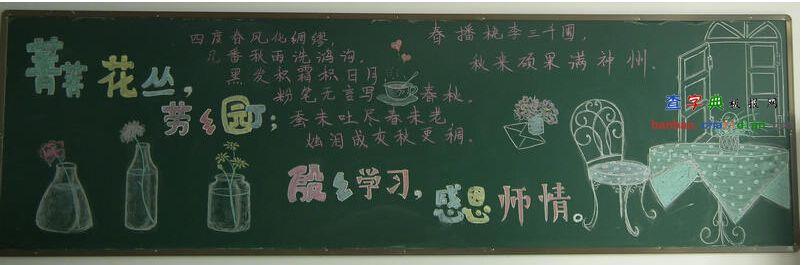 菁菁花丛，
芳々园；
四度春风化绸缪，
几番秋雨洗鸿沟。
黑发积霜积日月，
粉笔无言写春秋。
蚕未吐尽春未老，
烛泪成灰秋更稠。
春播桃李三千圃，
秋来硕果满神州。
殷々学习，
感恩师情。
查字典板报网